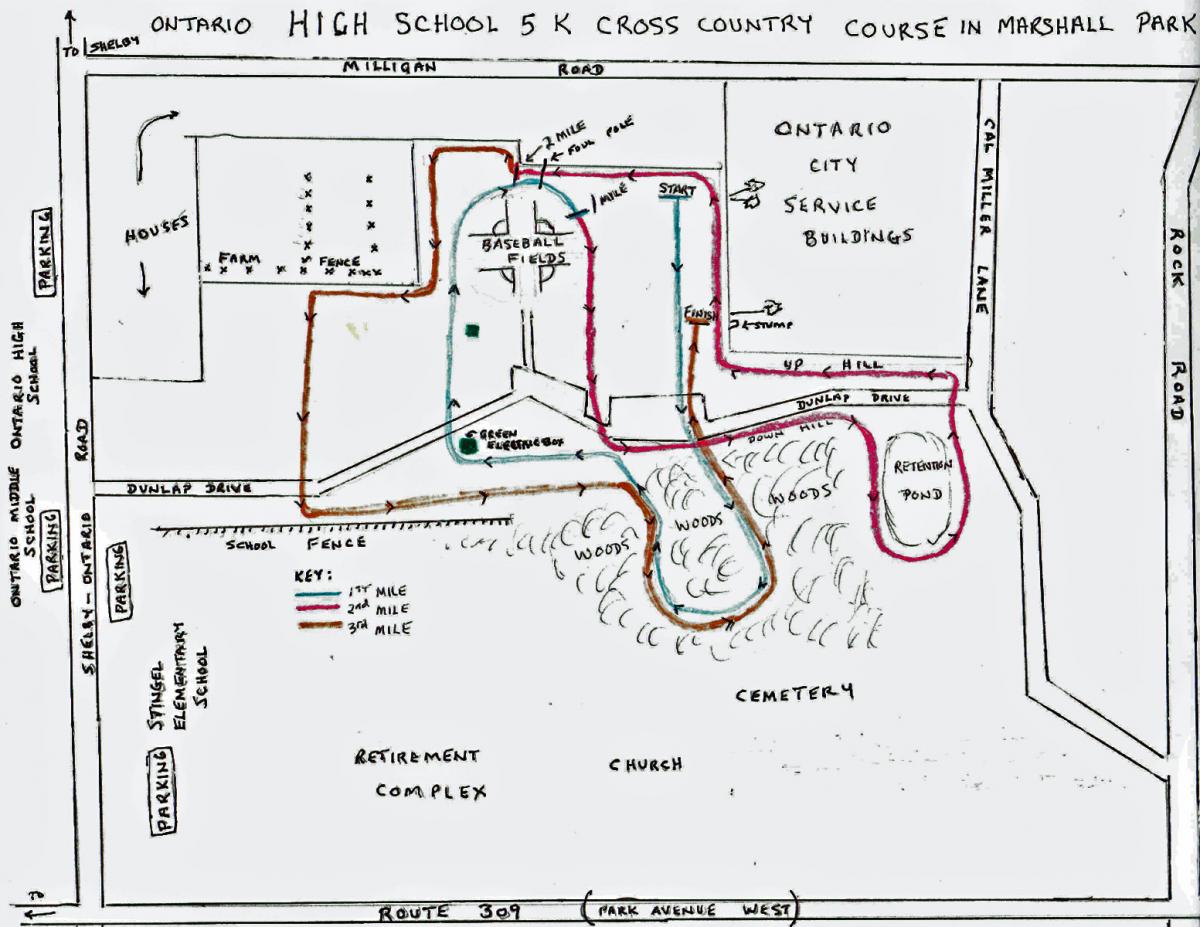 ONTARIO HIGH SCHOOL 5 K CROSS COUNTRY COURSE IN MARSHALL PARK
TO SHELBY
MILLIGAN ROAD
2 MILE
FOUL POLE
1 MILE
START
ONTARIO
CITY
SERVICE
BUILDINGS
CAL MILLER LANE
ROCK ROAD
HOUSES
FARM FENCE
BASEBALL
FIELDS
FINISH
STUMP
UP HILL
DUNLAP DRIVE
DOWN HILL
GREEN
ELECTRIC BOX
RETENTION
POND
WOODS
WOODS
WOODS
DUNLAP DRIVE
SCHOOL FENCE
KEY:
1ST MILE
2nd MILE
3rd MILE
PARKING
ONTARIO HIGH
SCHOOL
ONTARIO MIDDLE
SCHOOL
PARKING
SHELBY-ONTARIO ROAD
PARKING
STINGEL
ELEMENTARY
SCHOOL
PARKING
CEMETERY
RETIREMENT
COMPLEX
CHURCH
TO
ROUTE 309 (PARK AVENUE WEST)